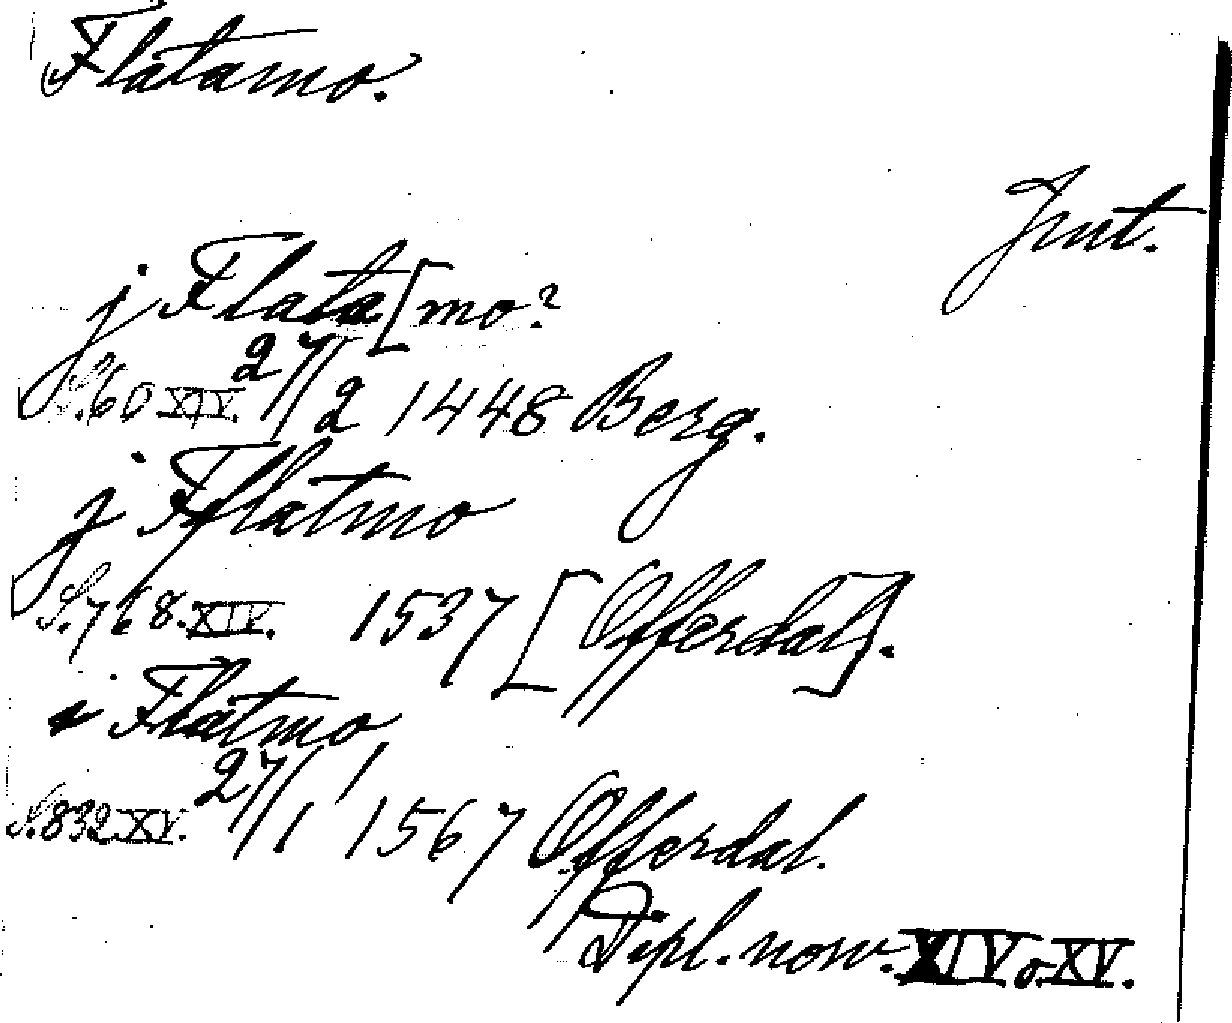 Flåtamo.
Jmt.
j Flata [mo?
S. 60 XIV. 27/2 1448 Berg.
j Fflatmo
S. 768. XIV. 1537 [Offerdal].
i Flåtmo
S. 832 XV. 27/1 1567 Offerdal.
Dipl. norv. XIV o. XV.